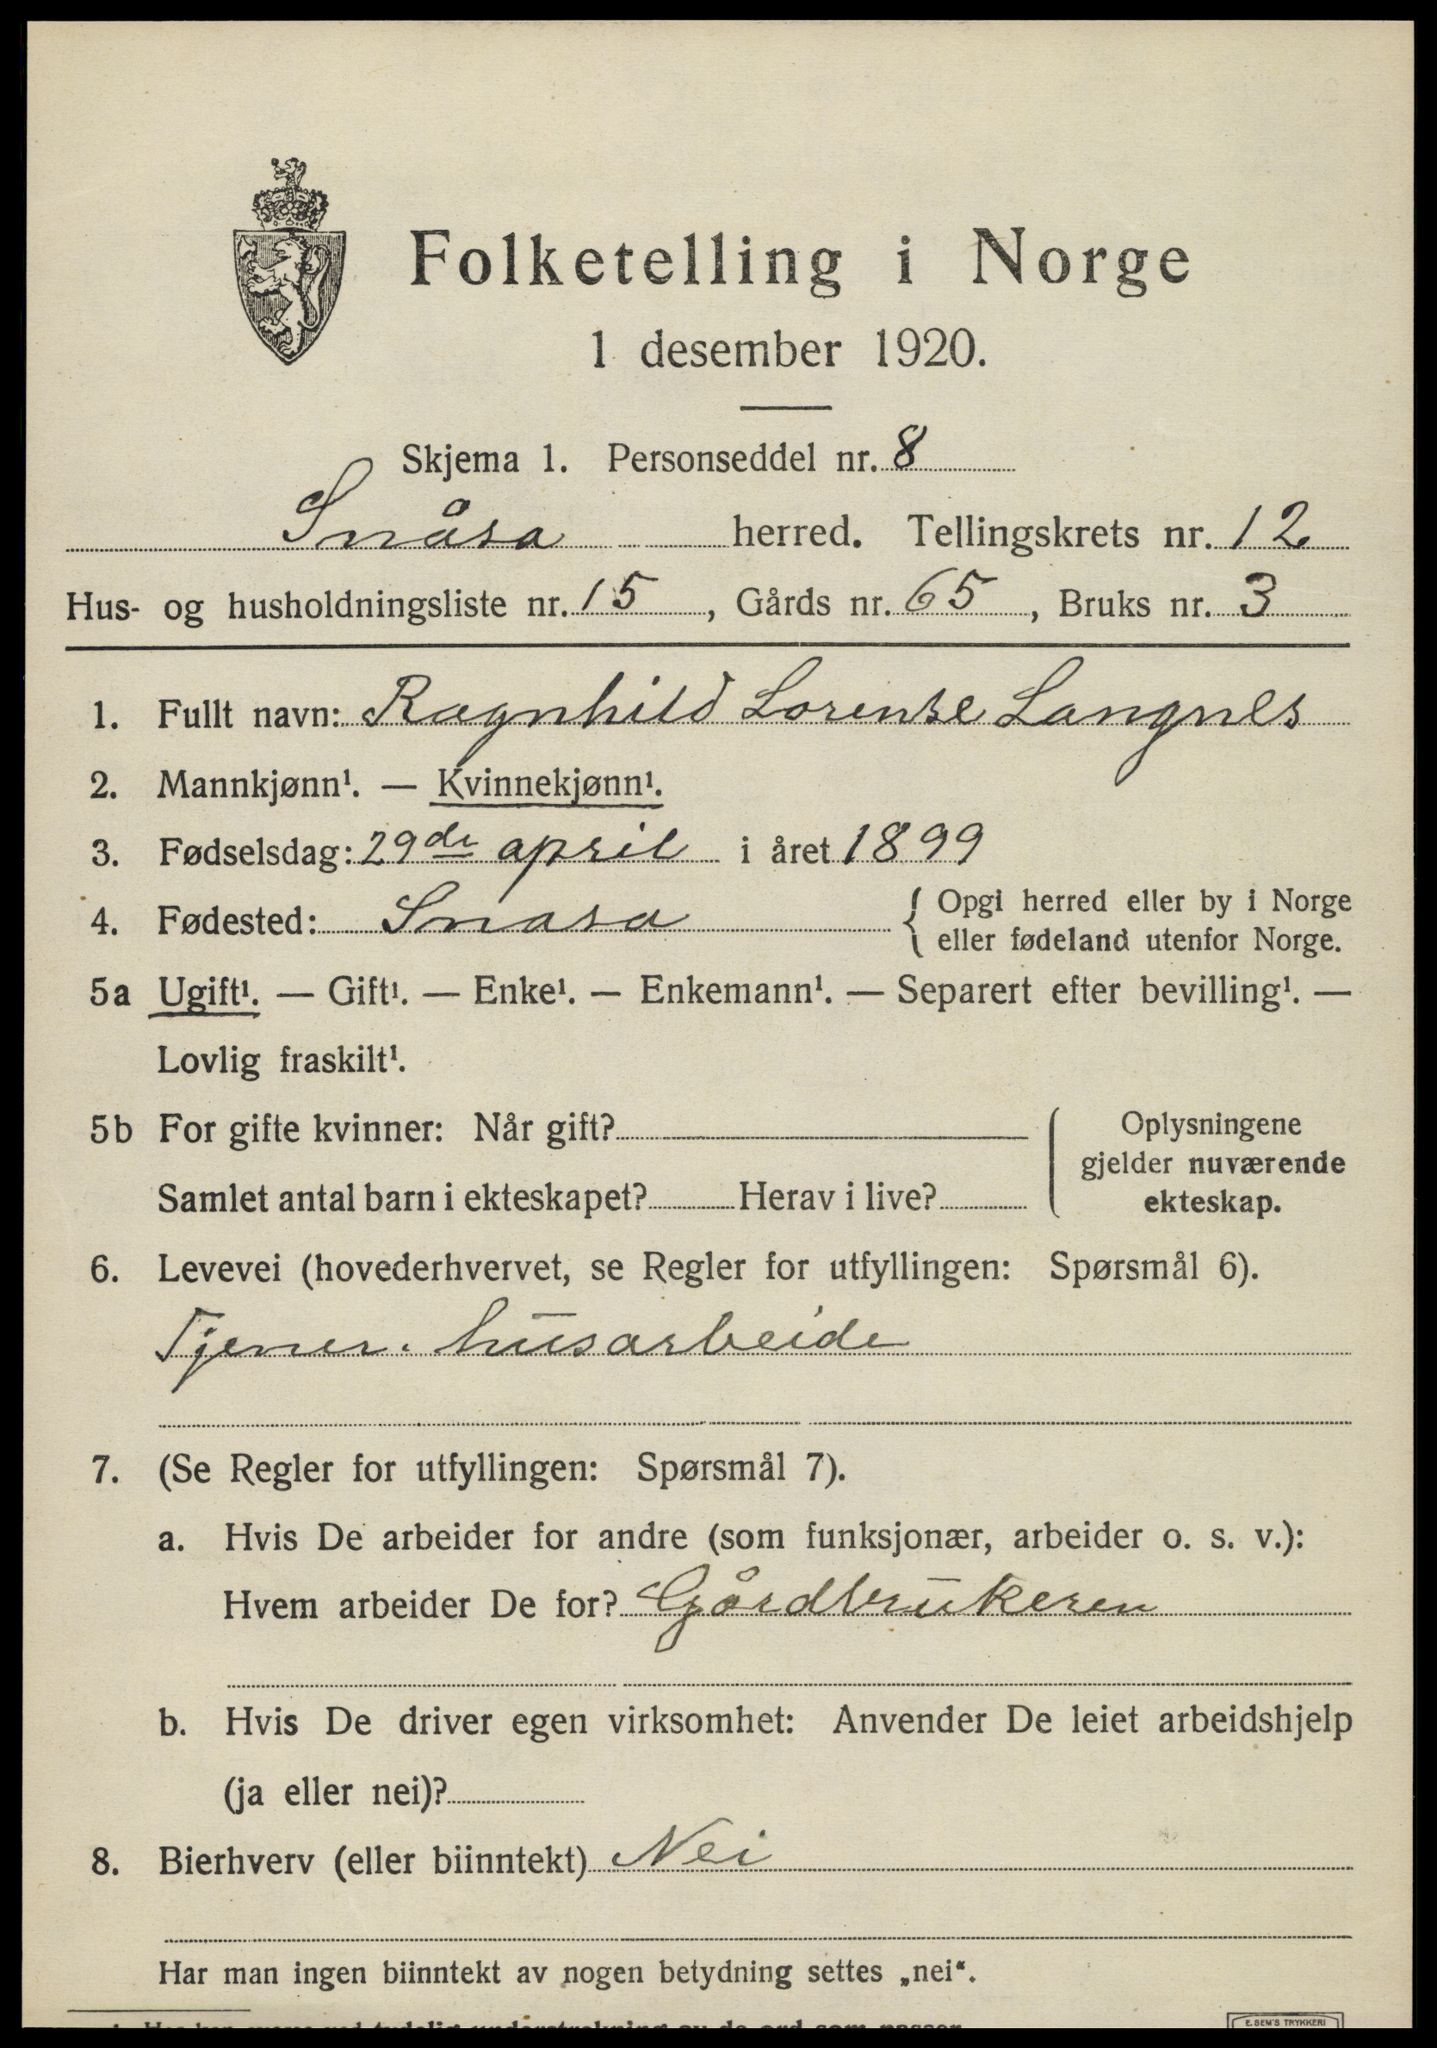 Folketelling i Norge
1 desember 1920.
Skjema 1. Personseddel nr. 8
Snåsa herred. Tellingskrets nr. 12
Hus- og husholdningsliste nr. 15, Gårds nr. 65, Bruks nr. 3
1. Fullt navn: Ragnhild Lorense Langnes
2. Mannkjønn¹. — Kvinnekjønn¹.
3. Fødselsdag: 29de april i året 1899
4. Fødested: Snasa { Opgi herred eller by i Norge
eller fødeland utenfor Norge.
5a Ugift¹. — Gift¹. — Enke¹. — Enkemann¹. — Separert efter bevilling¹. —
Lovlig fraskilt¹.
5b For gifte kvinner: Når gift?
Samlet antal barn i ekteskapet? Herav i live?
Oplysningene
gjelder nuværende
ekteskap.
6. Levevei (hovederhvervet, se Regler for utfyllingen: Spørsmål 6).
Tjener. husarbeide
7. (Se Regler for utfyllingen: Spørsmål 7).
a. Hvis De arbeider for andre (som funksjonær, arbeider o. s. v.):
Hvem arbeider De for? Gårdbrukeren
b. Hvis De driver egen virksomhet: Anvender De leiet arbeidshjelp
(ja eller nei)?
8. Bierhverv (eller biinntekt) Nei
Har man ingen biinntekt av nogen betydning settes „nei“.
E. SEM'S TRYKKERI